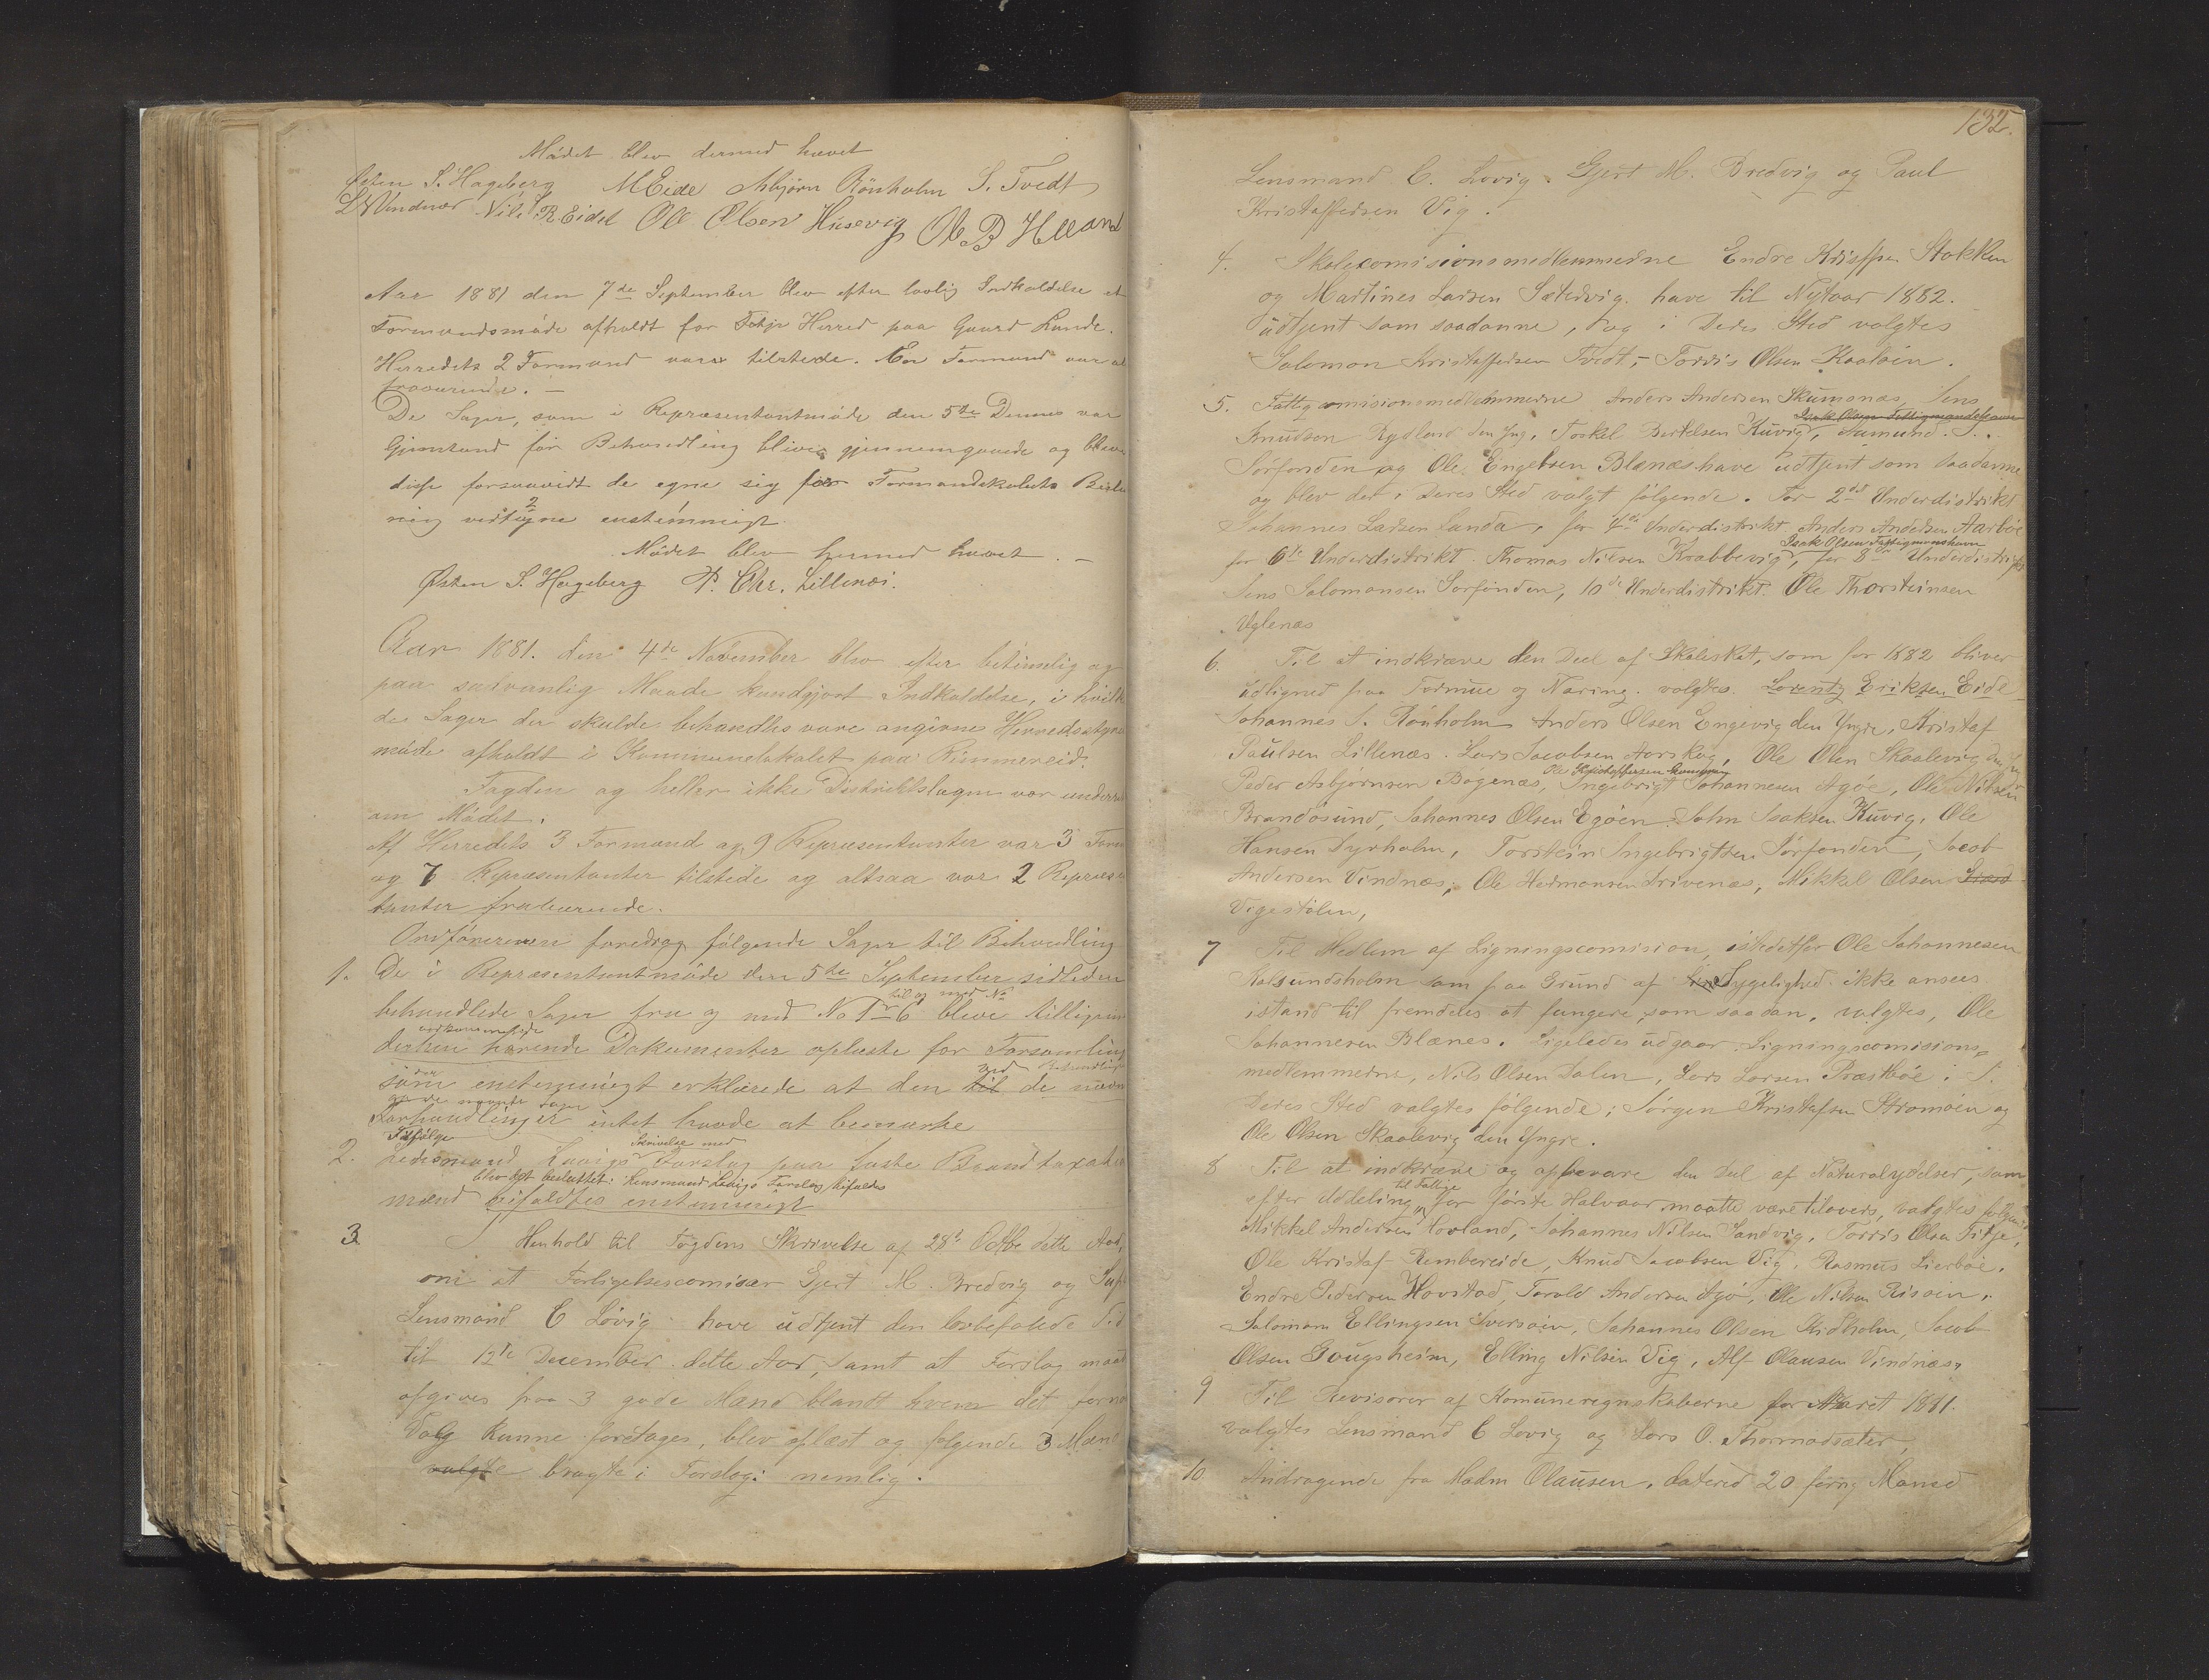 Mødet blev dermed hævet
Østen S. Hageberg MEide Asbjörn Rönholm S. Tvedt
Nils R Eide Ole Olsen Husevig
Aar 1881 den 7de September blev efter lovlig Indkaldelse et
Formandsmøde afholdt for Fitje Herred paa Gaard Lunde.
Herredets 2 Formænd vare tilstede. En Formand var
fraværende. —
De Sager, som i Repræsentantmøde den 5te Dennes var
Gjenstand for Behandling bliver gjennemgaaede og blev
disse forsaavidt de egne sig for Formandskabets
enstemmigt.
Mødet blev hermed hævet. —
Østen S. Hageberg P. Chr. Lillenæs.
Aar 1881. den 4de November blev efter betimelig og
paa sædvanlig Maade kundgjort Indkaldelse, i hvilk
de Sager der skulde behandles vare angivne Herredsstyre
møde afholdt i Kommunelokalet paa Rimmereid.
Fogden og heller ikke Distriktslægen var underre
om Mødet.
Af Herredets 3 Formænd og 9 Repræsentanter var 3 Form
og 7 Repræsentanter tilstede og altsaa var 2 Repræse
tanter fraværende.
Ordføreren foredrog følgende Sager til Behandling
1. De i Repræsentantmøde den 5te September sidleden
til og med No
behandlede Sager fra og med No 1 6 bleve tilligem
vedkommende
derhen hørende Dokumenter oplæste for Forsamling
der ved Behandling
som enstemmigt erklærede at den til de nævn
nævnte Sager
Forhandlinger intet havde at bemærke
Ifølge Skrivelse med
2. Lensmand Løvigs Forslag paa faste Brandtaxatio
blev det besluttet: Lensmand Løvigs Forslag bifaldes
mænd bifaldtes enstemmigt
3. I Henhold til Fogdens Skrivelse af 28de Octbr dette Aar,
om at Forligelsescomisær Gjert M. Bredvig og Sup
Lensmand C Løvig have udtjent den lovbefalede Tid
til 12te December dette Aar, samt at Forslag maat
afgives paa 3 gode Mænd blandt hvem det forn
Valg kunne foretages, blev oplæst og følgende 3 Mænd
valgte bragte i Forslag: nemlig.
132.
Lensmand C. Lovig. Gjert M. Bredvig og Paul
Kristoffersen Vig.
4. Skolecomisionsmedlemmerne Endre Stokken
og Martines Larsen Sætrevig. have til Nytaar 1882.
udtjent som saadanne, og i Deres Sted valgtes
Salomon Kristoffersen Tvedt, – Torris Olsen Kaaløen.
5. Fattigcomisionsmedlemmerne Anders Andersen Skumsnæs, Jens
Isak Olsen Fattigmandshavn
Knudsen Rydland den Yng. Torkel Bertelsen Kuvig, Aamund S.
Sørfonden og Ole Engelsen Blænæs have udtjent som saadanne
og blev der i Deres Sted valgt følgende. For 2det Underdistrikt
Johannes Larsen Landa, for 4de Underdistrikt Anders Andersen Aarbøe
Isak Olsen Fattigmanshavn
for 6te Underdistrikt Thomas Nilsen Krabbevig, for 8de Underdistrikt
Jens Salomonsen Sørfonden, 10de Underdistrikt. Ole Thorsteinsen
Uglenæs
6. Til at indkræve den Deel af Skoleskat, som for 1882 bliver
udlignet paa Formue og Næring. valgtes. Lorentz Eriksen Eide
Johannes S. Rönholm Anders Olsen Engevig den Yngre, Kristof
Paulsen Lillenæs. Lars Jacobsen Aarskog, Ole Olsen Skaalevig den
Ole Kristoffersen
Peder Asbjørnsen Bogenæs, Ingebrigt Johannesen Agøe, Ole Nilsen
Brandøsund, Johannes Olsen Egøen John Isaksen Kuvig. Ole
Hansen Dyrholm, Torstein Ingebrigtsen Sørfonden, Jacob
Andersen Vindnæs, Ole Hermansen Drivenæs, Mikkel Olsen
Vigestølen,
7 Til Medlem af Ligningscomision, istedetfor Ole Johannesen
Kalsundsholm som paa Grund af Sygelighed ikke ansees
istand til fremdeles at fungere som saadan, valgtes, Ole
Johannesen Blænes. Ligeledes udgaar Ligningscomisions=
medlemmerne, Nils Olsen Dalen, Lars Larsen Præstbøe i S.
Deres Sted valgtes følgende; Jørgen Kristofsen Strømøen og
Ole Olsen Skaalevig den Yngre.
8 Til at indkræve og opbevare den Del af Naturalydelser, som
til Fattige
efter Uddeling for første Halvaar maatte være tilovers, valgtes følgende
Mikkel Andersen Hovland, Johannes Nilsen Sandvig, Torris Olsen Fitje,
Ole Kristof Rembereide, Knud Jacobsen Vig, Rasmus Lierbøe.
Endre Pedersen Hovstad, Torald Andersen Agø, Ole Nilsen Risøen,
Salomon Ellingsen Sversøen, Johannes Olsen Skidholm, Jacob
Olsen Gougsheim, Elling Nilsen Vig, Alf Olausen Vindnæs,
9 Til Revisorer af Komuneregnskaberne for Aaret 1881.
valgtes Lensmand C Lovig og Lars O. Thormodsæter,
10 Andragende fra Madm Olausen, dateret 20 forrig Maaned